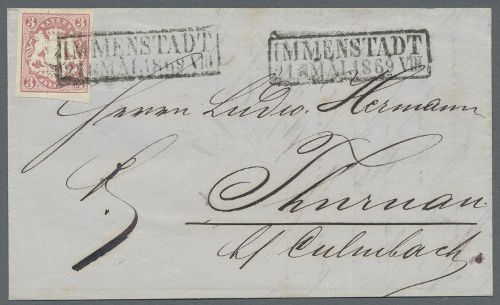 3 BAYERN 3
3 3
IMMENSTADT
21 MAI. 1869 VIII
IMMENSTADT
21 MAI. 1869 VIII
Herrn Ludw. Hermann
3
Thurnau
b/ Culmbach.